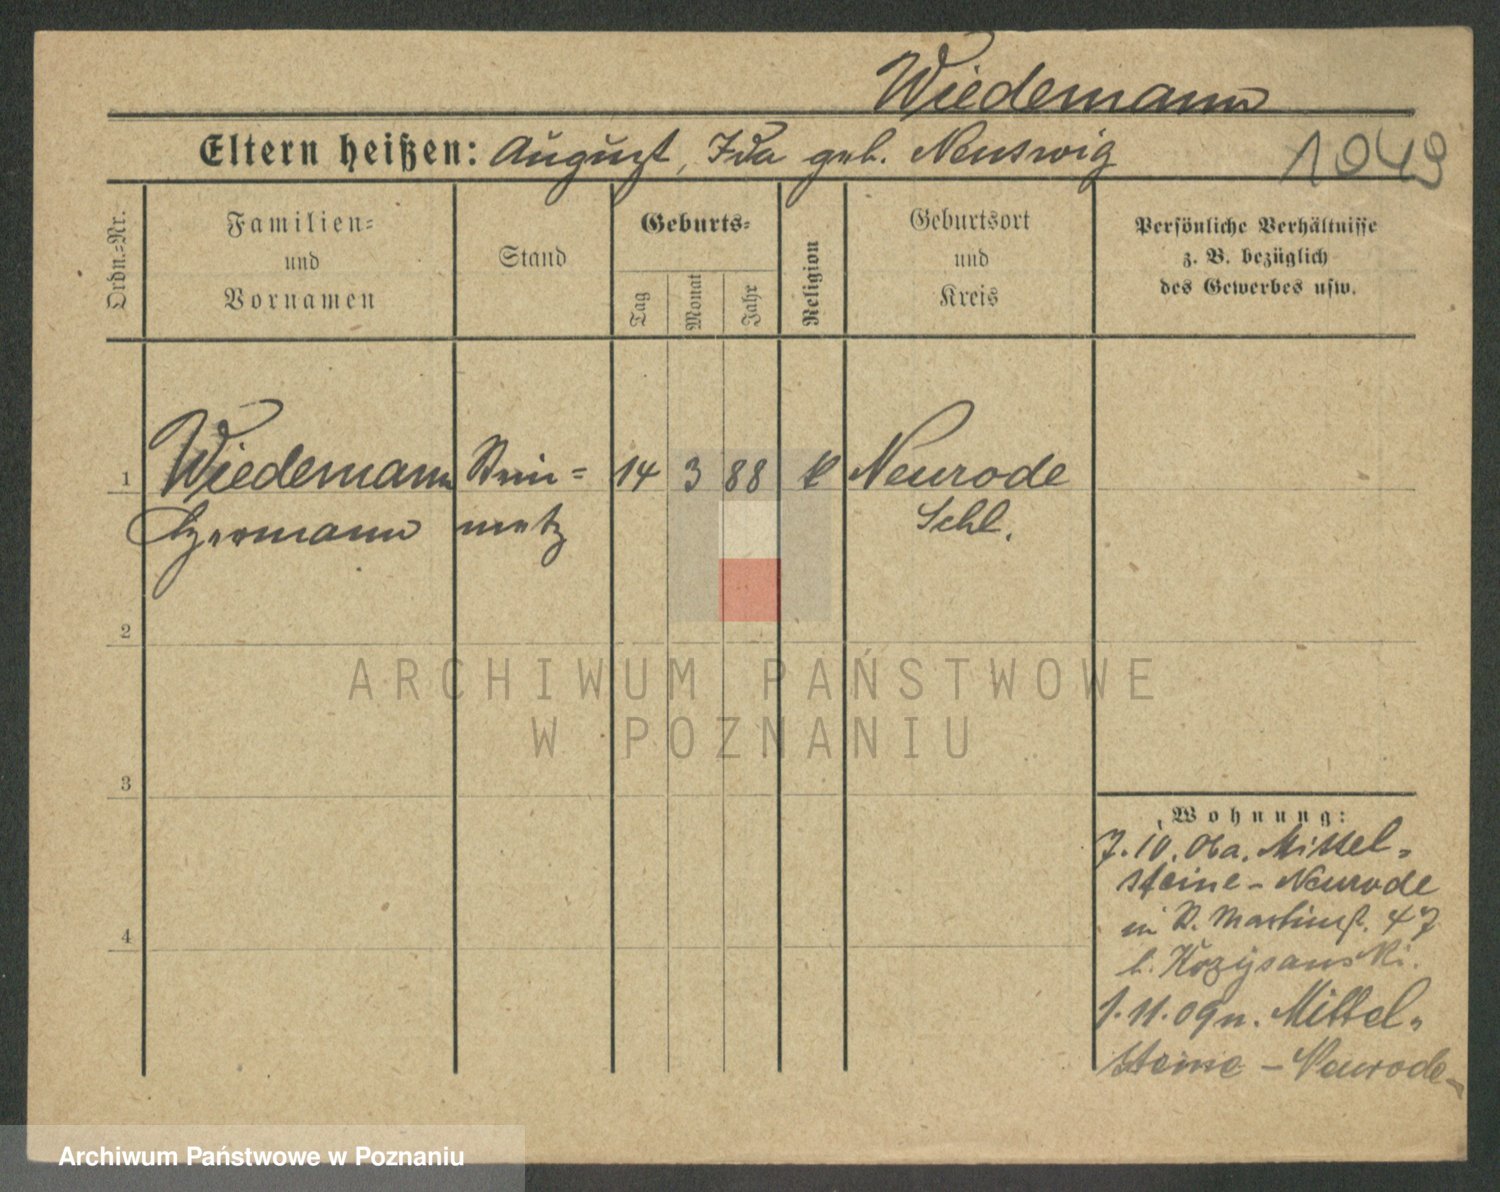 Wiedemann
Eltern heißen: August, Ida geb. Neuswig
1049
Ordn.=Nr.
Familien=
und
Vornamen
Stand
Geburts=
Tag
Monat
Jahr
Religion
Geburtsort
und
Kreis
Persönliche Verhältnisse
z. B. bezüglich
des Gewerbes usw.
1
Wiedemann Stein= 14 3 88 k Neurode
Hermann metz Schl.
2
3
4
Wohnung:
7.10. 06 a. Mittel=
steine - Neurode
in P. Martinst. 47
b.
1.11.09 n. Mittel=
steine - Neurode
ARCHIWUM PAŃSTWOWE
W POZNANIU
Archiwum Państwowe w Poznaniu